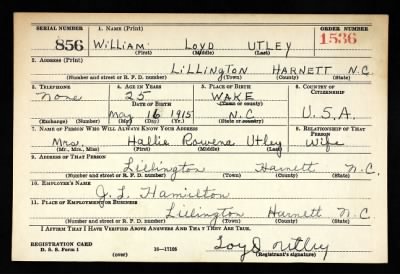 SERIAL NUMBER 1. NAME (Print) ORDER NUMBER
856 WILLIAM LOYD UTLEY 1536
(First) (Middle) (Last)
2. ADDRESS (Print)
LILLINGTON HARNETT N.C.
(Number and street or R. F. D. number) (Town) (County) (State)
3. TELEPHONE 4. AGE IN YEARS 5. PLACE OF BIRTH 6. COUNTRY OF CITIZENSHIP
None 25 WAKE
DATE OF BIRTH (Town or county)
May 16 1915 N.C. U.S.A.
(Exchange) (Number) (Mo.) (Day) (Yr.) (State or country)
7. NAME OF PERSON WHO WILL ALWAYS KNOW YOUR ADDRESS 8. RELATIONSHIP OF THAT PERSON
Mrs. Hallie Rowena Utley wife
(Mr., Mrs., Miss) (First) (Middle) (Last)
9. ADDRESS OF THAT PERSON
Lillington Harnett N.C.
(Number and street or R. F. D. number) (Town) (County) (State)
10. EMPLOYER'S NAME
J. L. Hamilton
11. PLACE OF EMPLOYMENT OR BUSINESS
Lillington Harnett N.C.
(Number and street or R. F. D. number) (Town) (County) (State)
I AFFIRM THAT I HAVE VERIFIED ABOVE ANSWERS AND THAT THEY ARE TRUE.
REGISTRATION CARD
D. S. S. Form 1 16—17105 Utley
(over) (Registrant's signature)